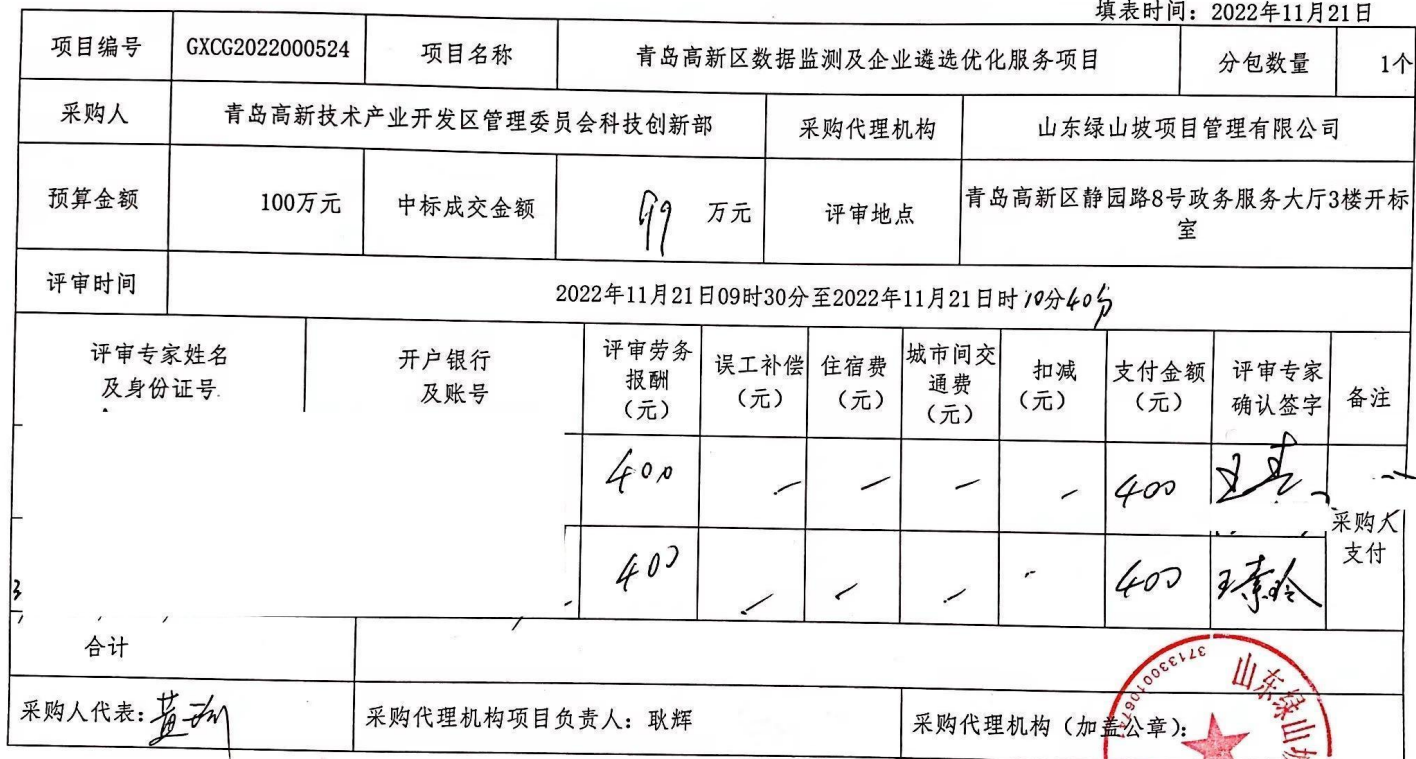 填表时间：2022年11月21日
项目编号 GXCG2022000524 项目名称 青岛高新区数据监测及企业遴选优化服务项目 分包数量 1个
采购人 青岛高新技术产业开发区管理委员会科技创新部 采购代理机构 山东绿山坡项目管理有限公司
预算金额 100万元 中标成交金额 99 万元 评审地点 青岛高新区静园路8号政务服务大厅3楼开标
室
评审时间 2022年11月21日09时30分至2022年11月21日时10分40分
评审专家姓名
及身份证号
开户银行
及账号
评审劳务
报酬
（元）
误工补偿
（元）
住宿费
（元）
城市间交
通费
（元）
扣减
（元）
支付金额
（元）
评审专家
确认签字
备注
400 — — — — 400
采购人
支付
400 — — — - 400 王素玲
合计
采购人代表： 采购代理机构项目负责人：耿辉 采购代理机构（加盖公章）：
山东绿山坡